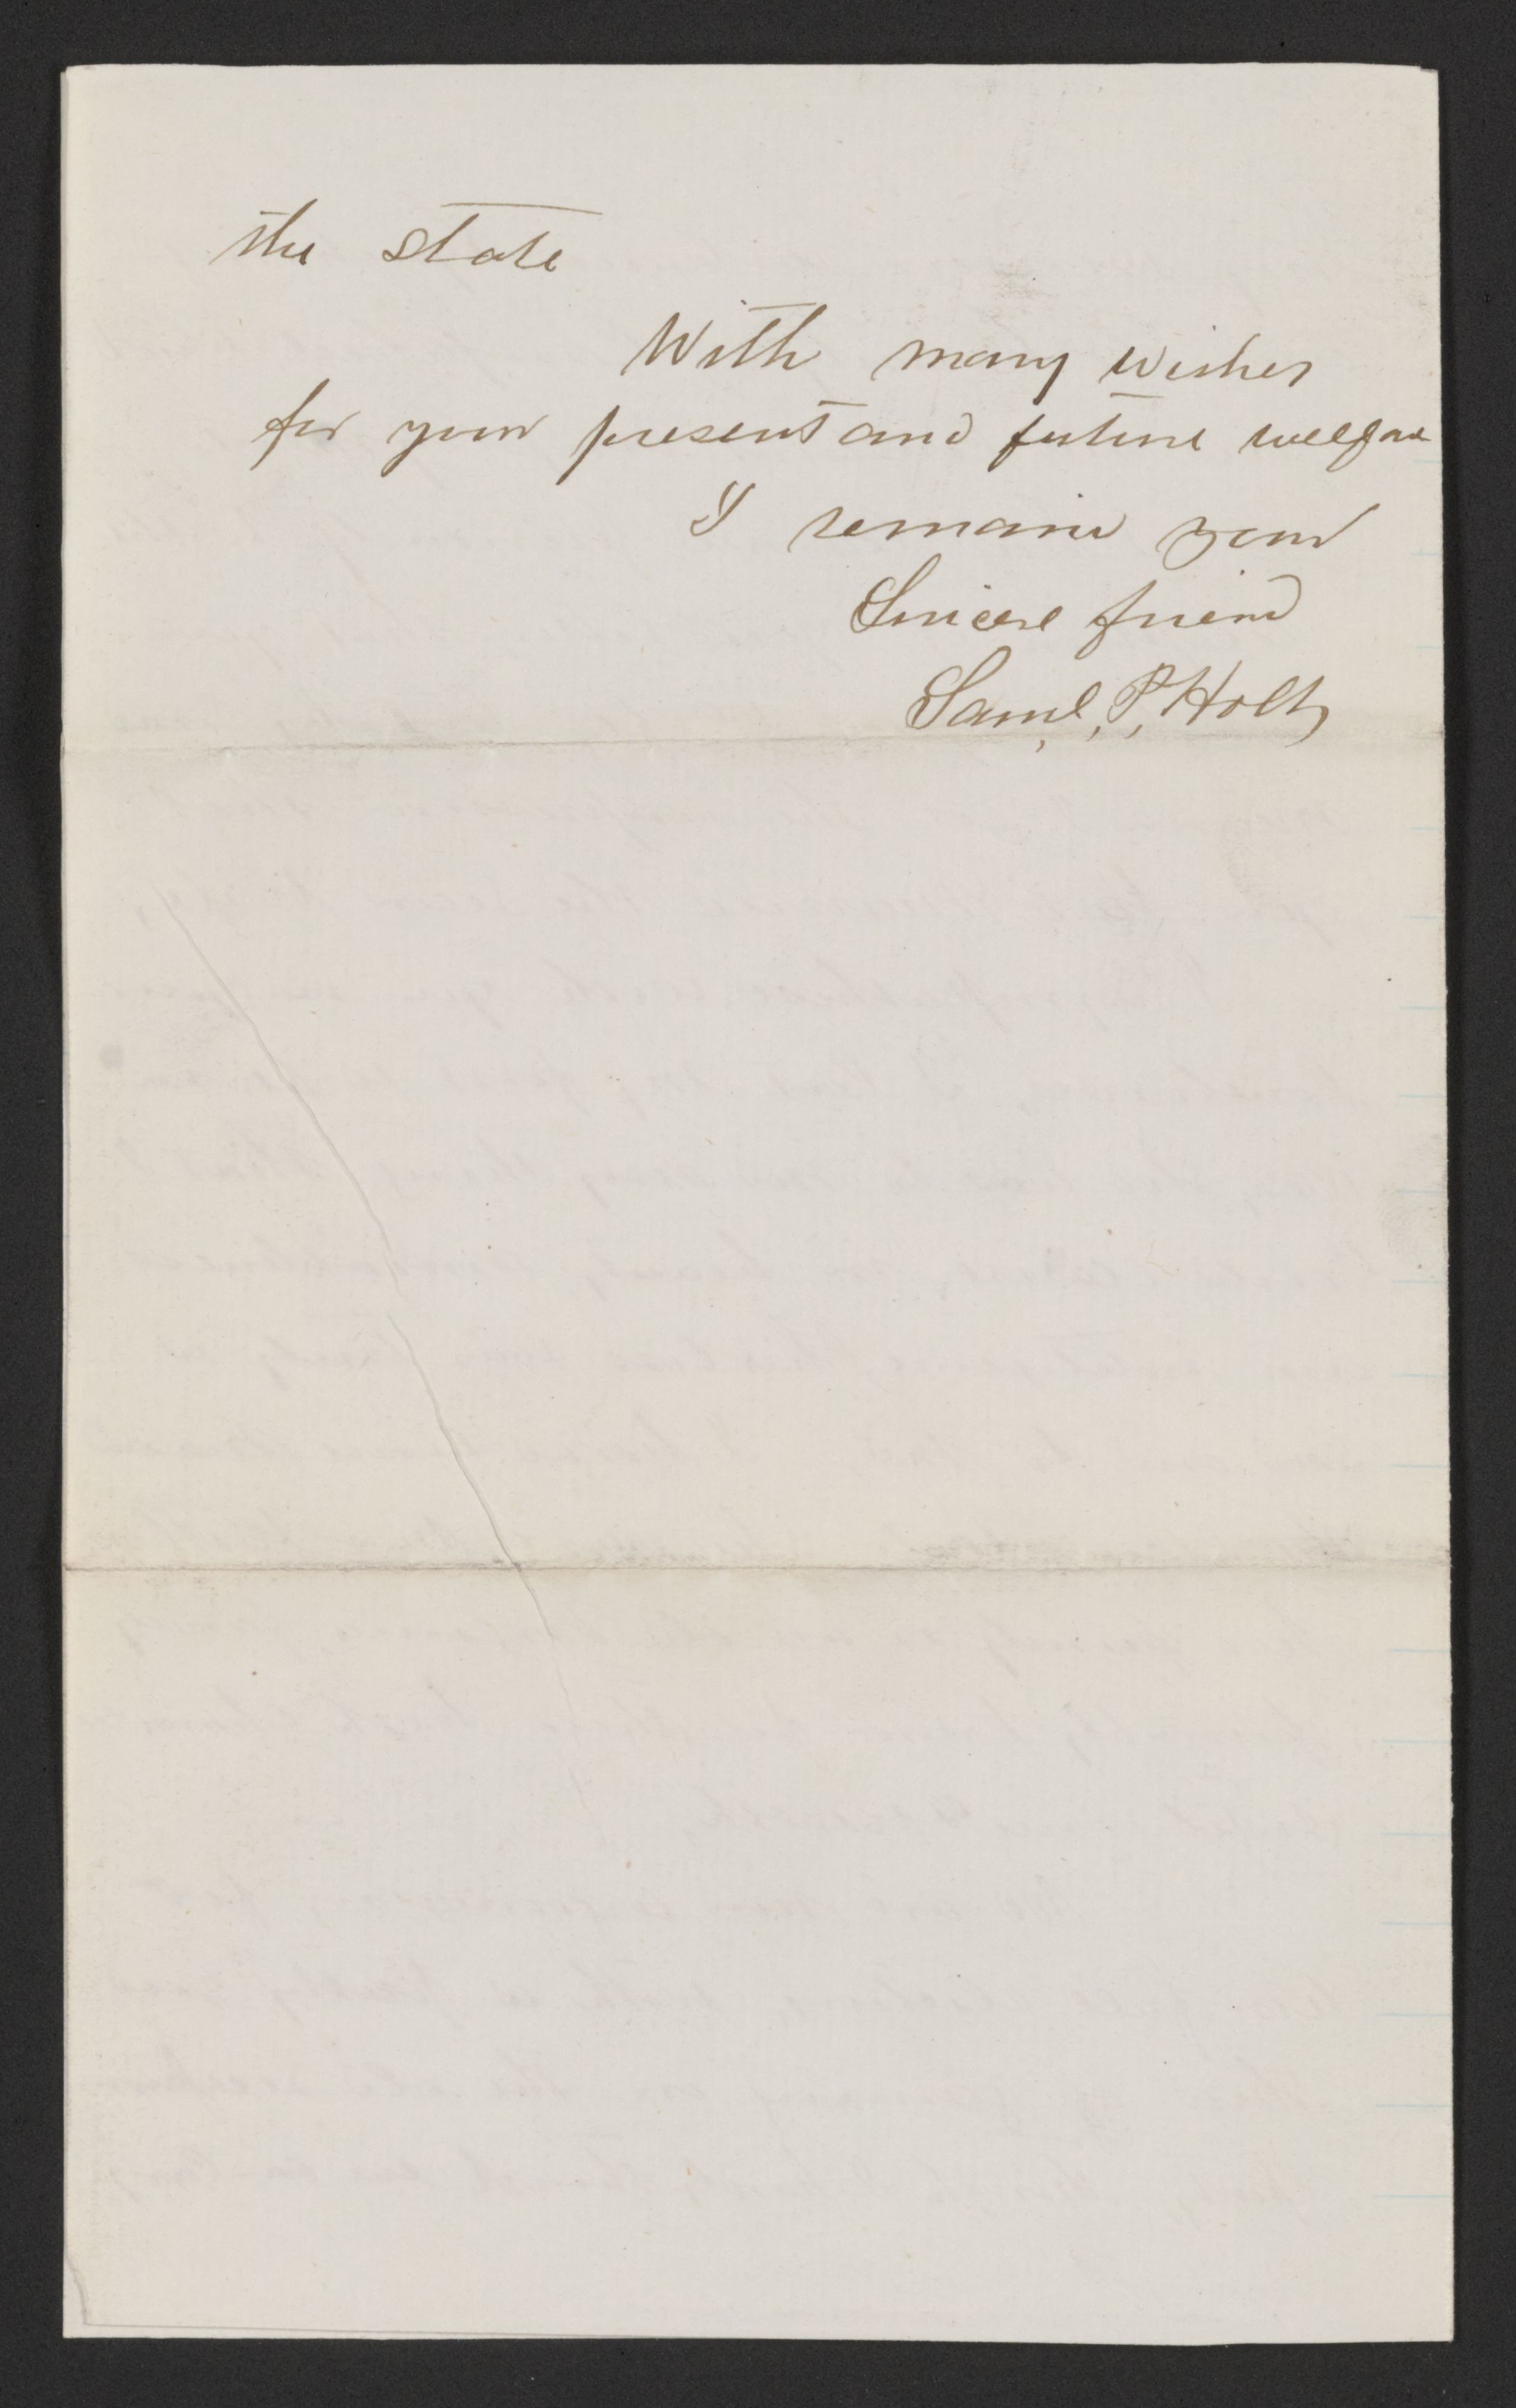 the state
With many wishes
for your present and future welfare
I remain your
Sincere friend
Saml, P, Holt,